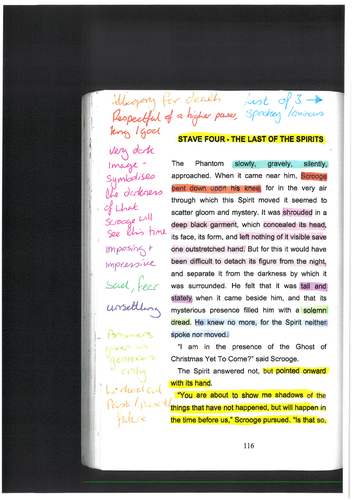 allegory for death
List of 3 →
Spooky / ominous
Respectful of a higher power
King / god
very dark
image -
Symbolises
the darkness
of what
Scrooge will
see this time
imposing +
impressive
Sad, fear
unsettling
answers
given in
gestures
only
Past / present /
future
STAVE FOUR - THE LAST OF THE SPIRITS
The Phantom slowly, gravely, silently,
approached. When it came near him, Scrooge
bent down upon his knee; for in the very air
through which this Spirit moved it seemed to
scatter gloom and mystery. It was shrouded in a
deep black garment, which concealed its head,
its face, its form, and left nothing of it visible save
one outstretched hand. But for this it would have
been difficult to detach its figure from the night,
and separate it from the darkness by which it
was surrounded. He felt that it was tall and
stately when it came beside him, and that its
mysterious presence filled him with a solemn
dread. He knew no more, for the Spirit neither
spoke nor moved.
"I am in the presence of the Ghost of
Christmas Yet To Come?" said Scrooge.
The Spirit answered not, but pointed onward
with its hand.
"You are about to show me shadows of the
things that have not happened, but will happen in
the time before us," Scrooge pursued. "Is that so,
116